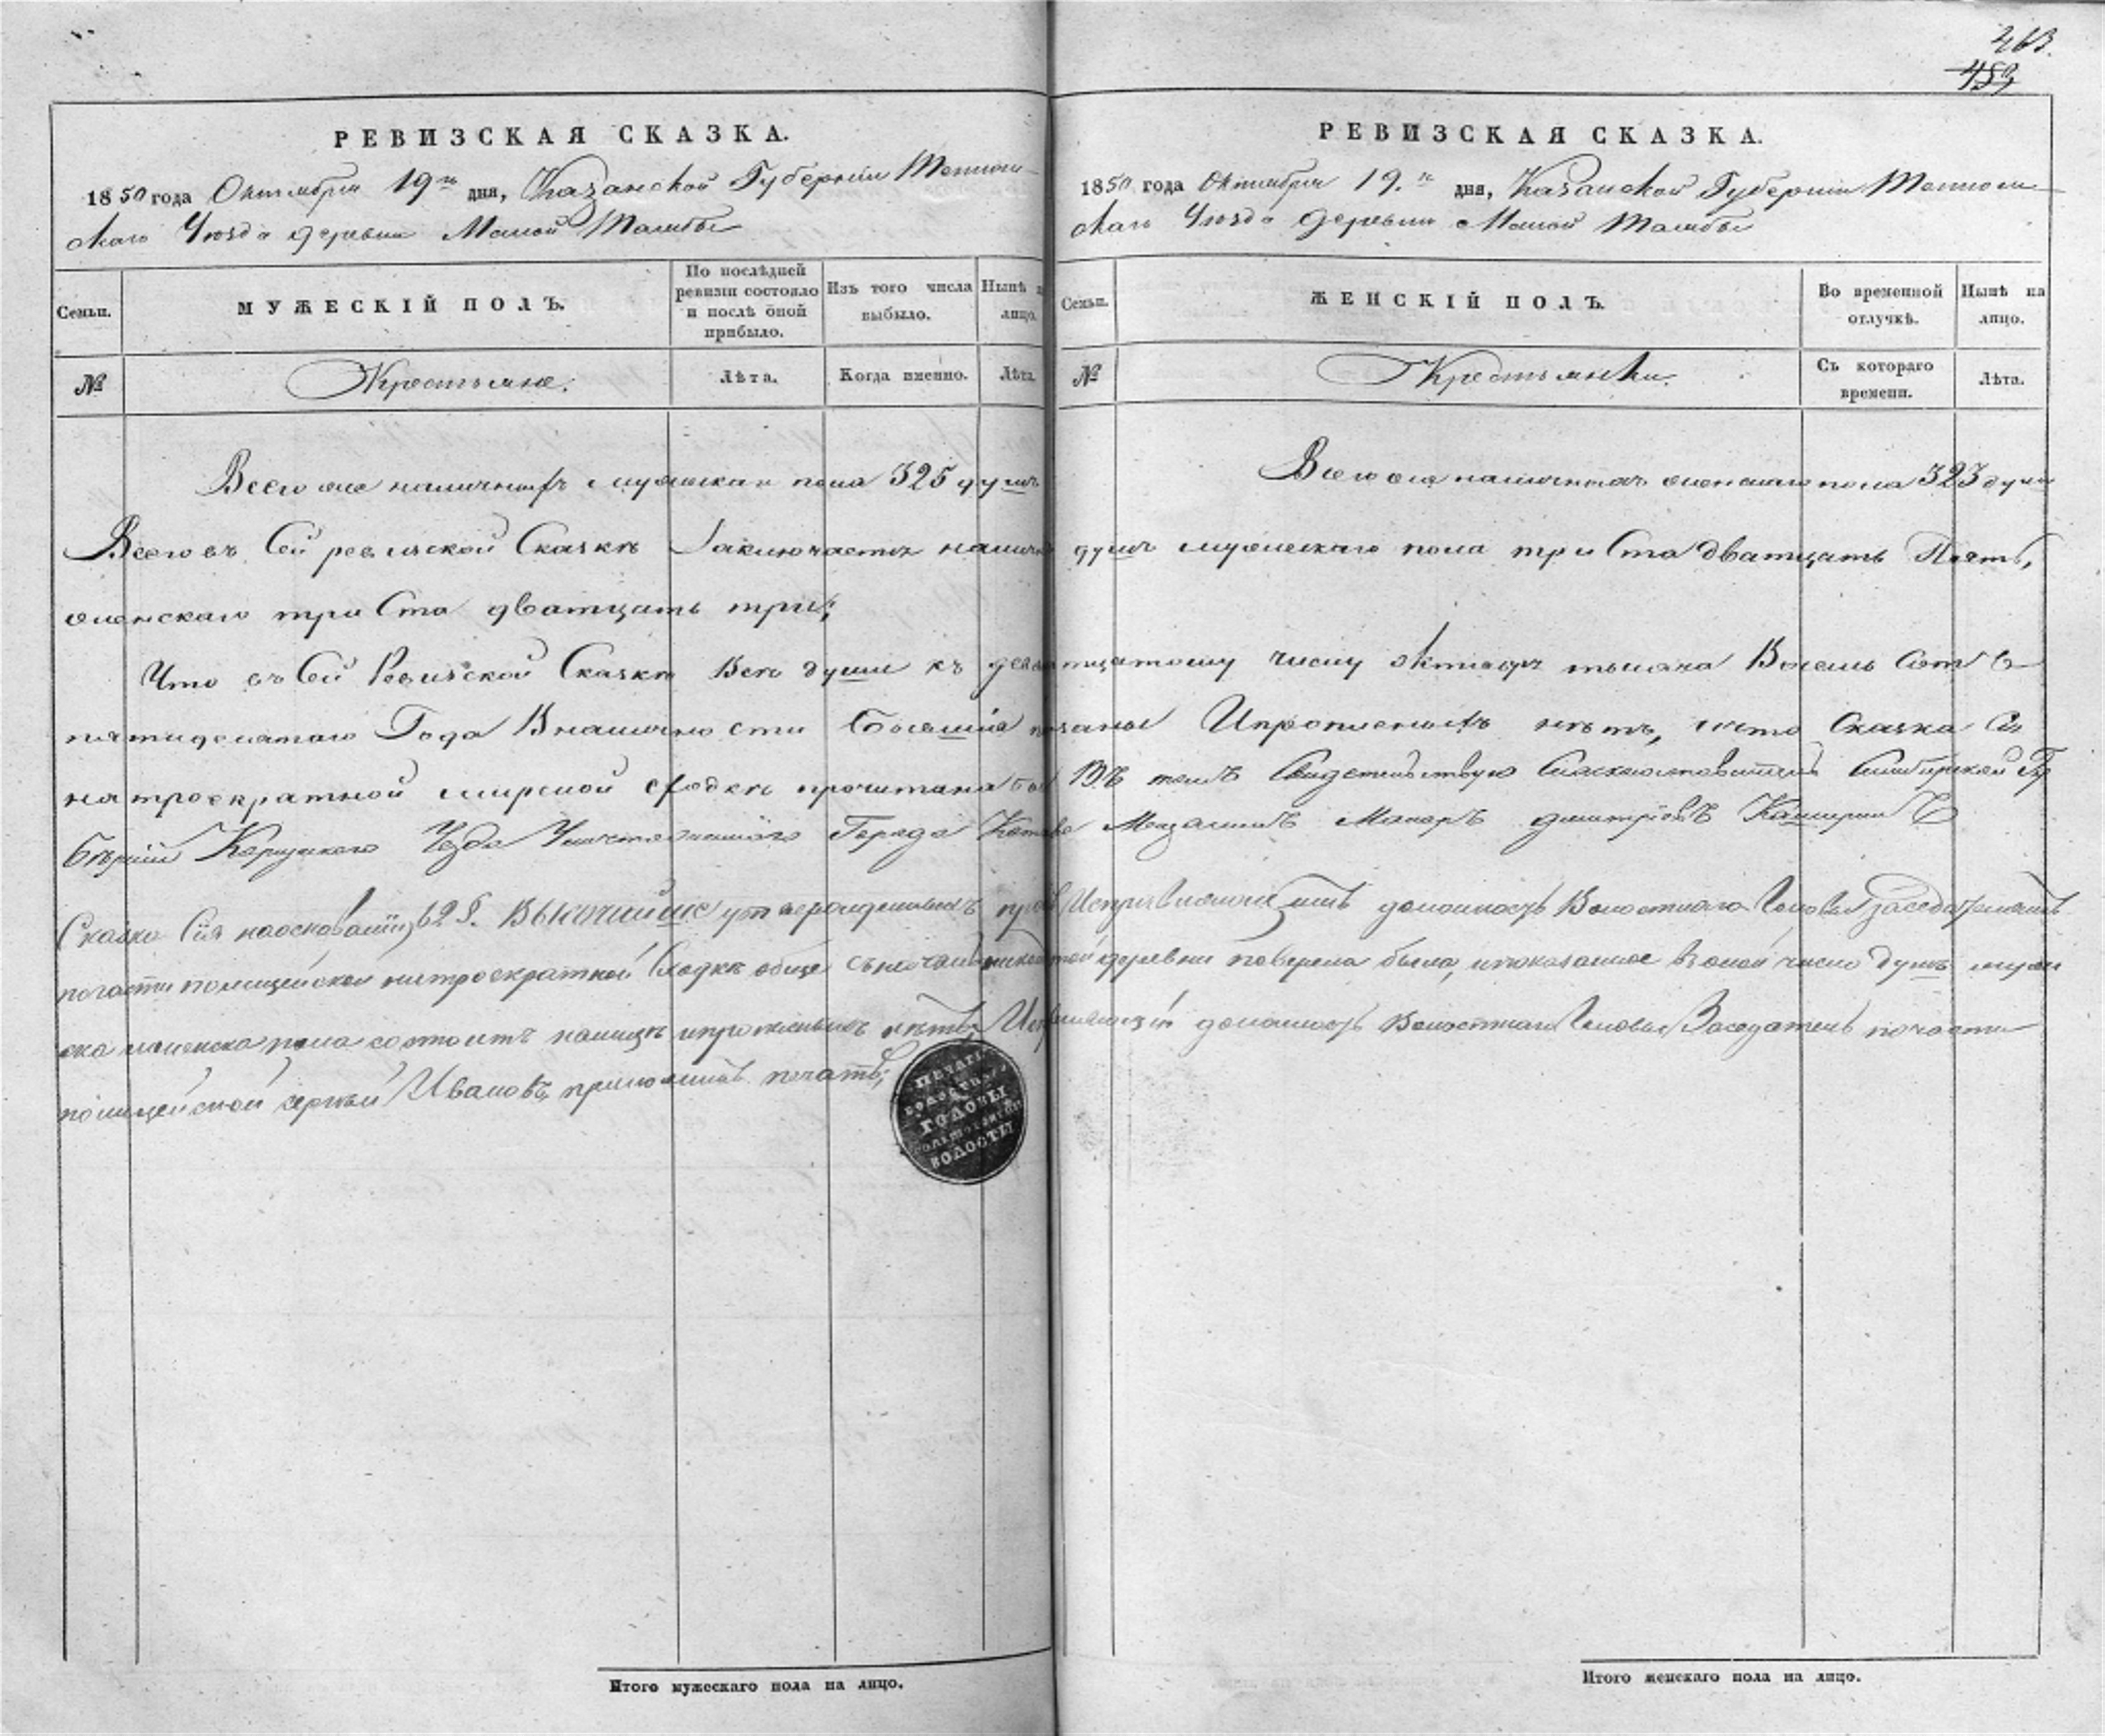 263.
459
РЕВИЗСКАЯ СКАЗКА.
1850 года Октября 19го дня, Казанской Губерніи Тетюш-
скаго Уѣзда деревни Малой Тоябы
Семьи.
МУЖЕСКІЙ ПОЛЪ.
По послѣдней ревизіи состояло и послѣ оной прибыло.
Изъ того числа выбыло.
Нынѣ на лицо.
№
Крестьяне.
Лѣта.
Когда именно.
Лѣта.
РЕВИЗСКАЯ СКАЗКА.
1850 года Октября 19.го дня, Казанской Губерніи Тетюш-
скаго Уѣзда деревни Малой Тоябы
Семьи.
ЖЕНСКІЙ ПОЛЪ.
Во временной отлучкѣ.
Нынѣ на лицо.
№
Крестьянки.
Съ котораго времени.
Лѣта.
Всего наличныхъ мужеска пола 325 душъ
Всего наличныхъ женскаго пола 323 души
Всего въ Сей ревизской Сказкѣ Заключается налично душъ мужескаго пола три Ста дватцать Пять,
женскаго три Ста дватцать три;
Что въ Сей Ревизской Сказкѣ Всѣ души къ девятнатцатому числу октября тысяча Восемь Сотъ
пятидесятаго Года Вналичности бывшіе показаны Ипрописныхъ нѣтъ, что Сказка Сія
на троекратной мирской сходкѣ прочитана была Въ томъ Свидетельствую Сказкосоставитель Симбирской Гу
берніи Корсунскаго Уѣзда Города Мещанинъ Макаръ Дмитріевъ
Сказка Сія наоснованіи 62 §. Высочайше утвержденныхъ правилъ Исправляющимъ должность Волостнаго Головы заседателемъ
почасти полицейской натроекратной Сходкѣ обще деревни поверена была, ипоказанное Воной число душъ муже
ска иженска пола состоитъ налицѣ ипрописныхъ нѣтъ; Исправляющій должность Волостнаго Головы Заседатель почасти
полицейской Сергѣй Ивановъ, приложилъ печать;
ПЕЧАТЬ
ВОЛОСТНАГО
ГОЛОВЫ
ВОЛОСТИ
Итого мужескаго пола на лицо.
Итого женскаго пола на лицо.